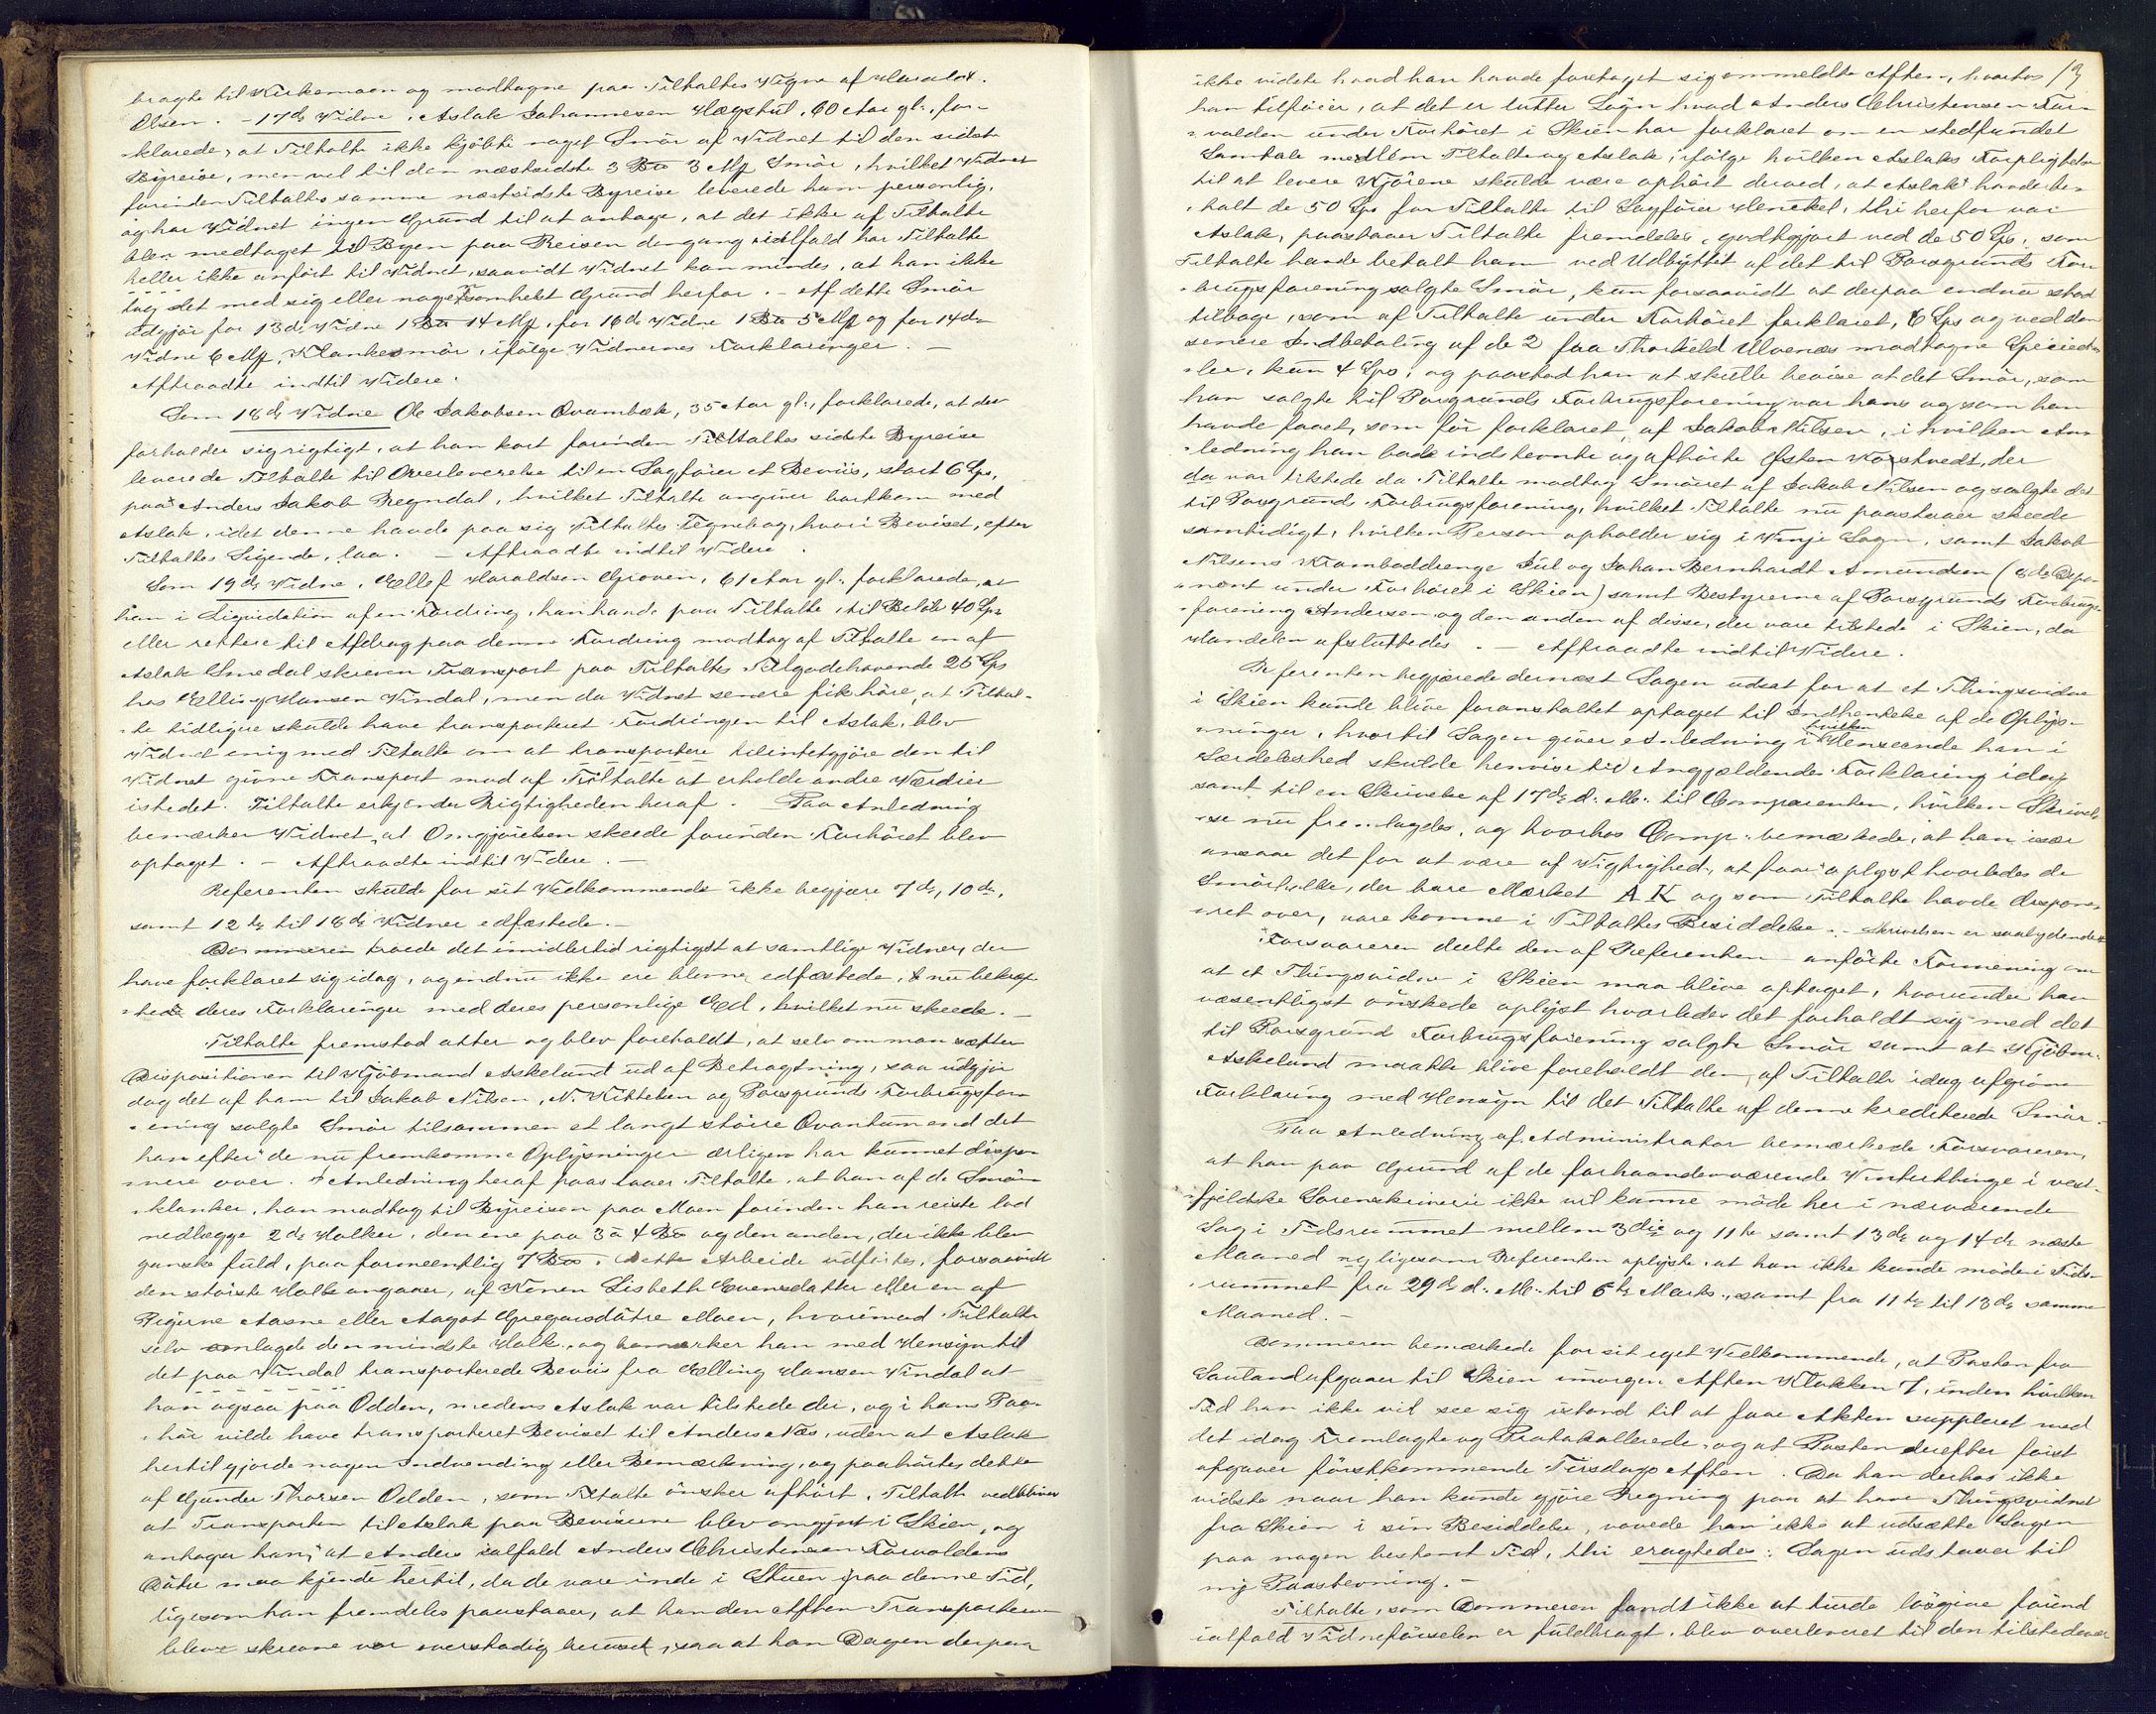 bragte til Kirkemoen og modtagne paa Tiltaltes Vegne af Harald
Olsen. - 17de Vidne, Aslak Johannesen Hægstul, 60 Aar gl., for-
klarede, at Tiltalte ikke kjøbte noget Smör af Vidnet til den sidste
Byreise, men vel til den næstsidste 3 Bø 3 Mp Smör, hvilket Vidnet
forinden Tiltaltes samme næstsidste Byreise leverede ham personlig,
og har Vidnet ingen Grund til at antage, at det ikke af Tiltalte
blev medtaget til Byen paa Reisen dengang ialfald har Tiltalte
heller ikke anfört til Vidnet, saavidt Vidnet kan mindes, at han ikke
tog det med sig eller nogetsomhelst Grund herfor. - Af dette Smör
udgjör for 13de Vidne 1 Bø 14 Mp, for 16de Vidne 1 Bø 5 Mp og for 14de
Vidne 6 Mp, Klankesmör, ifölge Vidnernes Forklaringer. -
Aftraadte indtil Videre.
Som 18de Vidne Ole Jakobsen Qvambæk, 35 Aar gl., forklarede, at det
forholder sig rigtigt, at han kort forinden Tiltaltes sidste Byreise
leverede Tiltalte til Overleverelse til en Sagförer et Beviis, stort 6 Sps,
paa Anders Jakob Regndal, hvilket Tiltalte angiver bortkom med
Aslak, idet denne havde paa sig Tiltaltes Tegnebog, hvori Beviset, efter
Tiltaltes Sigende, laa. - Aftraadte indtil Videre.
Som 19de Vidne, Ellef Haraldsen Groven, 61 Aar gl., forklarede, at
han i Liqvidation af en Fordring, han havde paa Tiltalte, til Belöb 40 Sps
eller rettere til Afdrag paa denne Fordring modtog af Tiltalte en af
Aslak Smedal skreven Transport paa Tiltaltes Tilgodehavende 26 Sps
hos Elling Hansen Vindal, men da Vidnet senere fik höre, at Tiltal-
te tidligere skulde have transporteret Fordringen til Aslak, blev
Vidnet enig med Tiltalte om at transportere tilintetgjöre den til
Vidnet givne Transport mod af Tiltalte at erholde andre Værdier
istedet. Tiltalte erkjender Rigtigheden heraf. Paa Anledning
bemærker Vidnet, at Omgjörelsen skeede forinden Forhöret blev
optaget. - Aftraadte indtil Videre. -
Referenten skulde for sit Vedkommende ikke begjære 7de, 10de,
samt 12te til 18de Vidner edfæstede. -
Dommeren troede det imidlertid rigtigst at samtlige Vidner, der
have forklaret sig idag, og endnu ikke ere blevne edfæstede, nu bekræf-
tede deres Forklaringer med deres personlige Eed, hvilket nu skeede. -
Tiltalte fremstod atter og blev foreholdt, at selv om man sætter
Dispositionen til Kjöbmand Askelund ud af Betragtning, saa udgjör
dog det af ham til Jakob Nilsen, N. Kittelsen og Porsgrunds Forbrugsfor-
ening solgte Smör tilsammen et langt större Qvantum end det
han efter de nu fremkomne Oplysninger ærligen har kunnet dispo-
nere over. I Anledning heraf paastaaer Tiltalte, at han af de Smör-
klanker, han modtog til Byreisen paa Moen forinden han reiste lod
nedlægge 2de Holker, den ene paa 3 a 4 Bø og den anden, der ikke blev
ganske fuld, paa formeentlig 7 Bø. Dette Arbeide udförtes, forsaavidt
den störste Holke angaaer, af Konen Lisbeth Evensdatter eller en af
Pigerne Aasne eller Aagot Gregarsdötre Moen, hvorimod Tiltalte
selv omlagde den mindste Holk, og bemærker han med Hensyn til
det paa Vindal transporterede Beviis fra Elling Hansen Vindal at
han ogsaa paa Odden, medens Aslak var tilstede der, og i hans Paa-
hör vilde have transporteret Beviset til Anders Næs, uden at Aslak
hertil gjorde nogen Indvending eller Bemærkning, og paahörtes dette
af Gunder Thorsen Odden, som Tiltalte önsker afhört. Tiltalte vedbliver
at Transporten til Aslak paa Beviserne blev omgjort i Skien, og
antager han, at Anders ialfald Anders Christensen Forvoldens
Döttre maa kjende hertil, da de vare inde i Stuen paa denne Tid,
ligesom han fremdeles paastaaer, at han den Aften Transporterne
bleve skrevne var overstadig beruset, saa at han Dagen derpaa
ikke vidste hvad han havde foretaget sig ommeldte Aften, hvorhos
han tilföier, at det er lutter Lögn hvad Anders Christensen For-
volden under Forhöret i Skien har forklaret om en stedfundet
Samtale mellem Tiltalte og Aslak, ifölge hvilken Aslaks Forpligtelse
til at levere Kjörene skulde være ophört derved, at Aslak havde be-
talt de 50 Sps for Tiltalte til Sagförer Henckel, thi herfor var
Aslak, paastaaer Tiltalte fremdeles, godtgjort ved de 50 Sps, som
Tiltalte havde betalt ham ved Udbyttet af det til Porsgrunds For-
brugsforening solgte Smör, kun forsaavidt at derpaa endnu stod
tilbage, som af Tiltalte under Forhöret forklaret, 6 Sps og ved den
senere Indbetaling af de 2 fra Thorkeld Ulvenæs modtagne Speciedа-
ler, kun 4 Sps, og paastod han at skulle bevise at det Smör, som
han solgte til Porsgrunds Forbrugsforening var hans og som han
havde faaet, som för forklaret, af Jakob Nilsen, i hvilken An-
ledning han bad indstevnte og afhörte Østen Korstvedt, der
da var tilstede da Tiltalte modtog Smöret af Jakob Nilsen og solgte det
til Porsgrunds Forbrugsforening, hvilket Tiltalte nu paastaaer skeede
samtidigt, hvilken Person opholder sig i Vinje Sogn, samt Jakob
Nilsens Kramboddrenge Juel og Johan Bernhardt Amundsen (8de Depo-
nent under Forhöret i Skien) samt Bestyrerne af Porsgrunds Forbrugs-
forening Andersen og den anden af disse, der vare tilstede i Skien, da
Handelen afsluttedes. - Aftraadte indtil Videre.
Referenten begjærede dernæst Sagen udsat for at et Thingsvidne
i Skien kunde blive foranstaltet optaget til Indhentelse af de Oplys-
ninger, hvortil Sagen giver Anledning i hvilken Henseende han i
Særdeleshed skulde henvise til Angjældendes Forklaring idag
samt til en Skrivelse af 17de d. M. til Comparenten, hvilken Skrivel-
se nu fremlagdes, og hvorhos Comp. bemærkede, at han især
ansaae det for at være af Vigtighed, at faae oplyst hvorledes de
Smörholke, der bare Mærket A K og som Tiltalte havde dispone-
ret over, vare komne i Tiltaltes Besiddelse. - Skrivelsen er saalydende
Forsvareren deelte den af Referenten anförte Formening om
at et Thingsvidne i Skien maa blive optaget, hvorunder han
væsentligst önskede oplyst hvorledes det forholdt sig med det
til Porsgrund Forbrugsforening solgte Smör samt at Kjöbm.
Askelund maatte blive foreholdt den af Tiltalte idag afgivne
Forklaring med Hensyn til det Tiltalte af denne krediterede Smör.
Paa Anledning af Administrator bemærkede Forsvareren,
at han paa Grund af de forhaandenværende Vinterthinge i vest-
fjeldske Sorenskriveri ikke vil kunne möde her i nærværende
Sag i Tidsrummet mellem 3die og 11te samt 13de og 14de næste
Maaned og ligesom Referenten oplyste, at han ikke kunde möde i Tids-
rummet fra 29de d. M. til 6te Marts, samt fra 11te til 13de samme
Maaned. -
Dommeren bemærkede for sit eget Vedkommende, at Posten fra
Sauland afgaaer til Skien imorgen Aften Klokken 7, inden hvilken
Tid han ikke vil see sig istand til at faae Akten suppleret med
det idag Fremlagte og Protokollerede, og at Posten derefter först
afgaaer förstkommende Tirsdags Aften. Da han derhos ikke
vidste naar han kunde gjöre Regning paa at have Thingsvidnet
fra Skien i sin Besiddelse, vovede han ikke at udsætte Sagen
paa nogen bestemt Tid, thi eragtedes: Sagen udstaaer til
ny Paastevning. -
Tiltalte, som Dommeren fandt ikke at turde lösgive förend
ialfald Vidneförselen er fuldbragt, blev overleveret til den tilstedevær